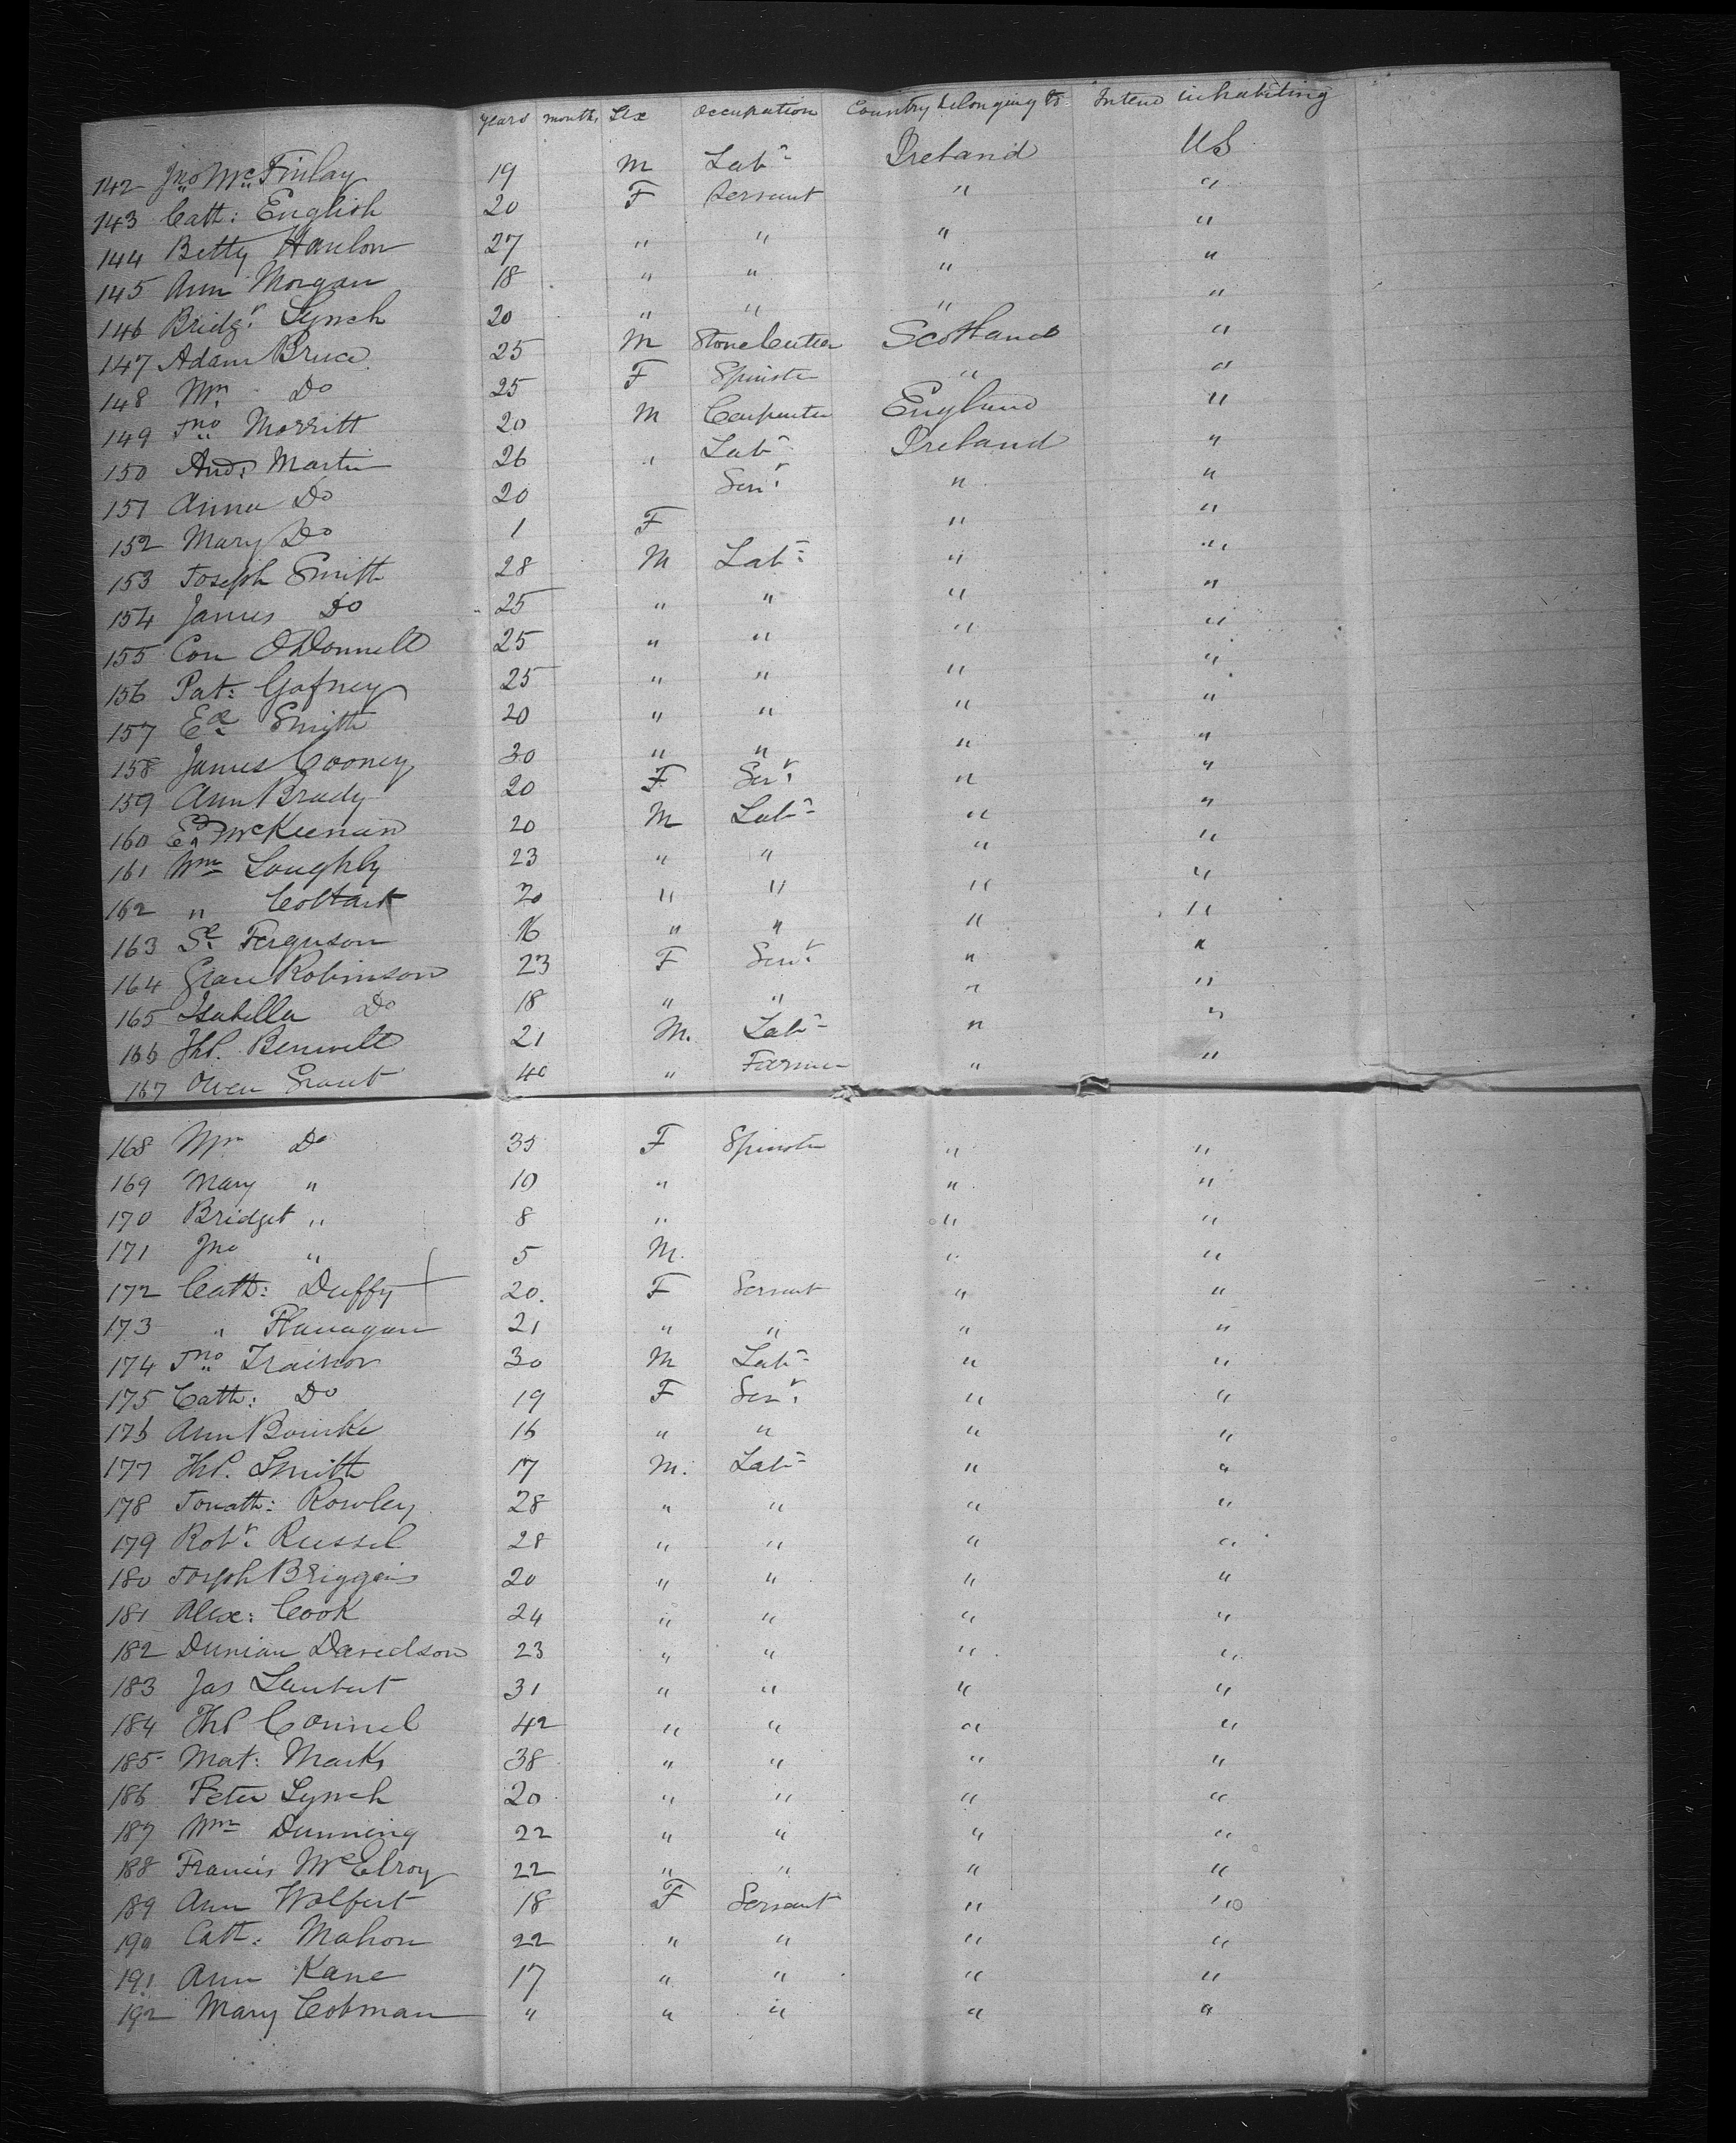 years months Sex Occupation Country belonging to Intend inhabiting
142 Jno McFinlay 19 M Labr Ireland US
143 Cath: English 20 F Servant " "
144 Betty Hanlon 27 " " " "
145 Ann Morgan 18 " " " "
146 Bridgt Lynch 20 " " " "
147 Adam Bruce 25 M Stone Cutter Scotland "
148 Mrs Do 25 F Spinster " "
149 Jno Merritt 20 M Carpenter England "
150 Andw Martin 26 " Labr Ireland "
151 Anna Do 20 Servt " "
152 Mary Do 1 F " "
153 Joseph Smith 28 M Labr " "
154 James Do 25 " " " "
155 Con O'Donnell 25 " " " "
156 Pat: Gafney 25 " " " "
157 Ed Smith 20 " " " "
158 James Cooney 30 " " " "
159 Ann Brady 20 F Servt " "
160 Ed McKiernan 20 M Labr " "
161 Wm Loughly 23 " " " "
162 " 20 " " " "
163 Sl Ferguson 16 " " " "
164 Robinson 23 F Servt " "
165 Isabella Do 18 " " " "
166 Ths. 21 M. Labr " "
167 Owen Grant 40 " Farmer " "
168 Mrs Do 35 F Spinster " "
169 Mary " 10 " " "
170 Bridget " 8 " " "
171 Jno " 5 M. " "
172 Cath: Duffy 20. F Servant " "
173 " Flanagan 21 " " " "
174 Jno Trainor 30 M Labr " "
175 Cath: Do 19 F Servt " "
176 Ann Bourke 16 " " " "
177 Ths. Smith 17 M. Labr " "
178 Jonath: Rowley 28 " " " "
179 Robt Russel 28 " " " "
180 Joseph Briggins 20 " " " "
181 Alex: Cook 24 " " " "
182 Dunian Davidson 23 " " " "
183 Jas 31 " " " "
184 Ths Connel 42 " " " "
185 Mat: Marks 38 " " " "
186 Peter Lynch 20 " " " "
187 Wm Dunning 22 " " " "
188 Francis McElroy 22 " " " "
189 Ann Wolfert 18 F Servant " "
190 Cath: Mahon 22 " " " "
191 Ann Kane 17 " " " "
192 Mary Cobman " " " " "